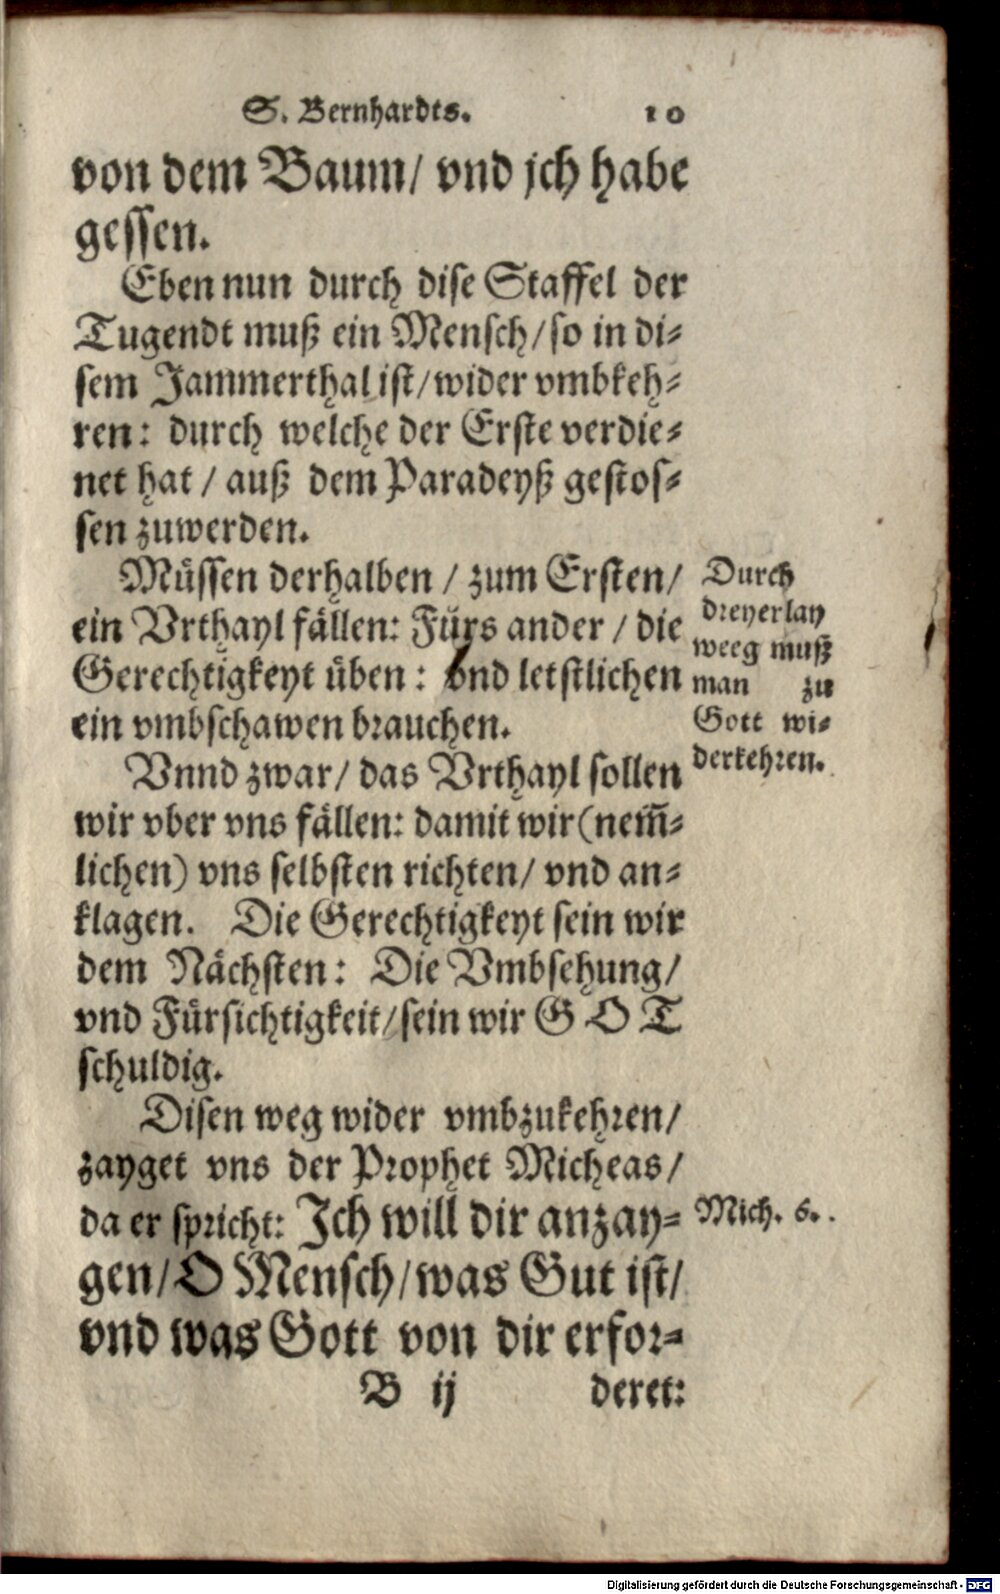 S. Bernhardts. 10
von dem Baum/ vnd jch habe
gessen.
Eben nun durch dise Staffel der
Tugendt muß ein Mensch/ so in di⸗
sem Jammerthal ist/ wider vmbkeh⸗
ren: durch welche der Erste verdie⸗
net hat / auß dem Paradeyß gestos⸗
sen zuwerden.
Müssen derhalben / zum Ersten/
ein Vrthayl fällen: Fürs ander / die
Gerechtigkeyt üben: vnd letstlichen
ein vmbschawen brauchen.
Durch
dreyerlay
weeg muß
man zu
Gott wi⸗
derkehren.
Vnnd zwar/ das Vrthayl sollen
wir vber vns fällen: damit wir (nem̄⸗
lichen) vns selbsten richten/ vnd an⸗
klagen. Die Gerechtigkeyt sein wir
dem Nächsten: Die Vmbsehung/
vnd Fürsichtigkeit/ sein wir GOT
schuldig.
Disen weg wider vmbzukehren/
zayget vns der Prophet Micheas/
da er spricht: Ich will dir anzay⸗
Mich. 6.
gen/ O Mensch/ was Gut ist/
vnd was Gott von dir erfor⸗
B ij deret:
Digitalisierung gefördert durch die Deutsche Forschungsgemeinschaft - DFG